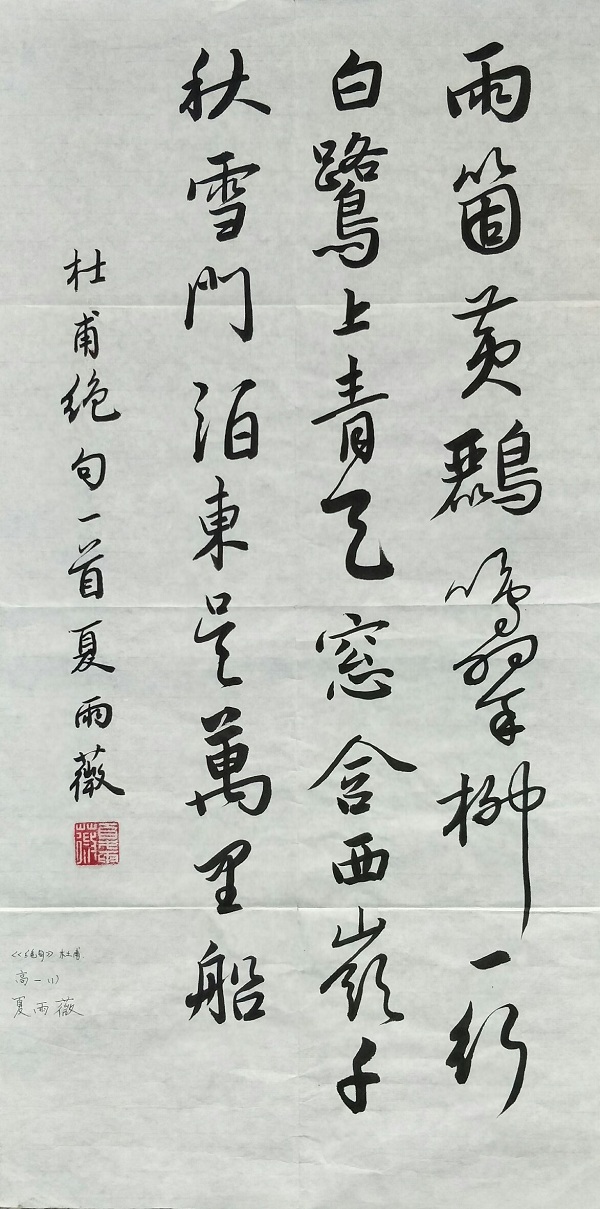 兩箇黄鸝鳴翠柳一行
白鷺上青天窓含西嶺千
秋雪門泊東吳萬里船
杜甫絶句一首夏雨薇
夏雨薇
《绝句》杜甫
高一(1)
夏雨薇